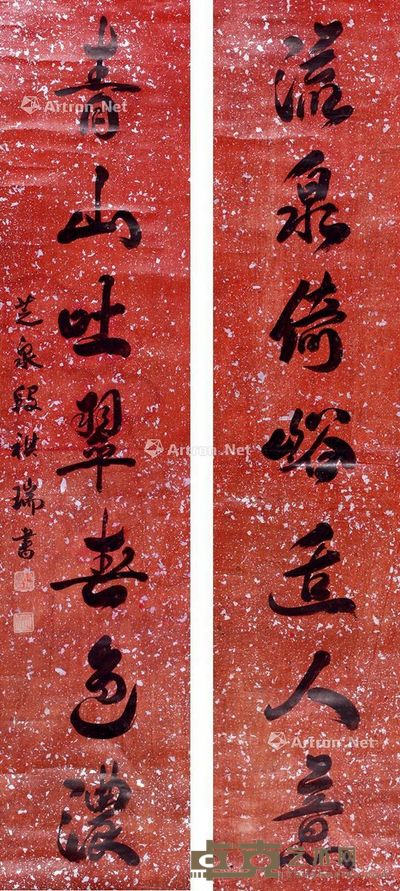 流泉倚峪人音
青山吐翠春色濃
芝泉段祺瑞書
Artron.Net
Artron.Net
Artron.Net
Artron.Net
Artron.Net
卓克艺术网